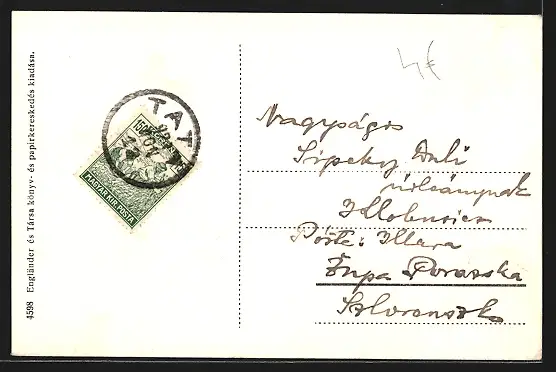 4598 Engländer és Társa könyv- és papirkereskedés kiadása.
TAT
MAGYAR KIR. POSTA
4€
Nagyságos
Sipeky Dali
úrleánynak
Pöste: Illava
Župa
Szlovenszko